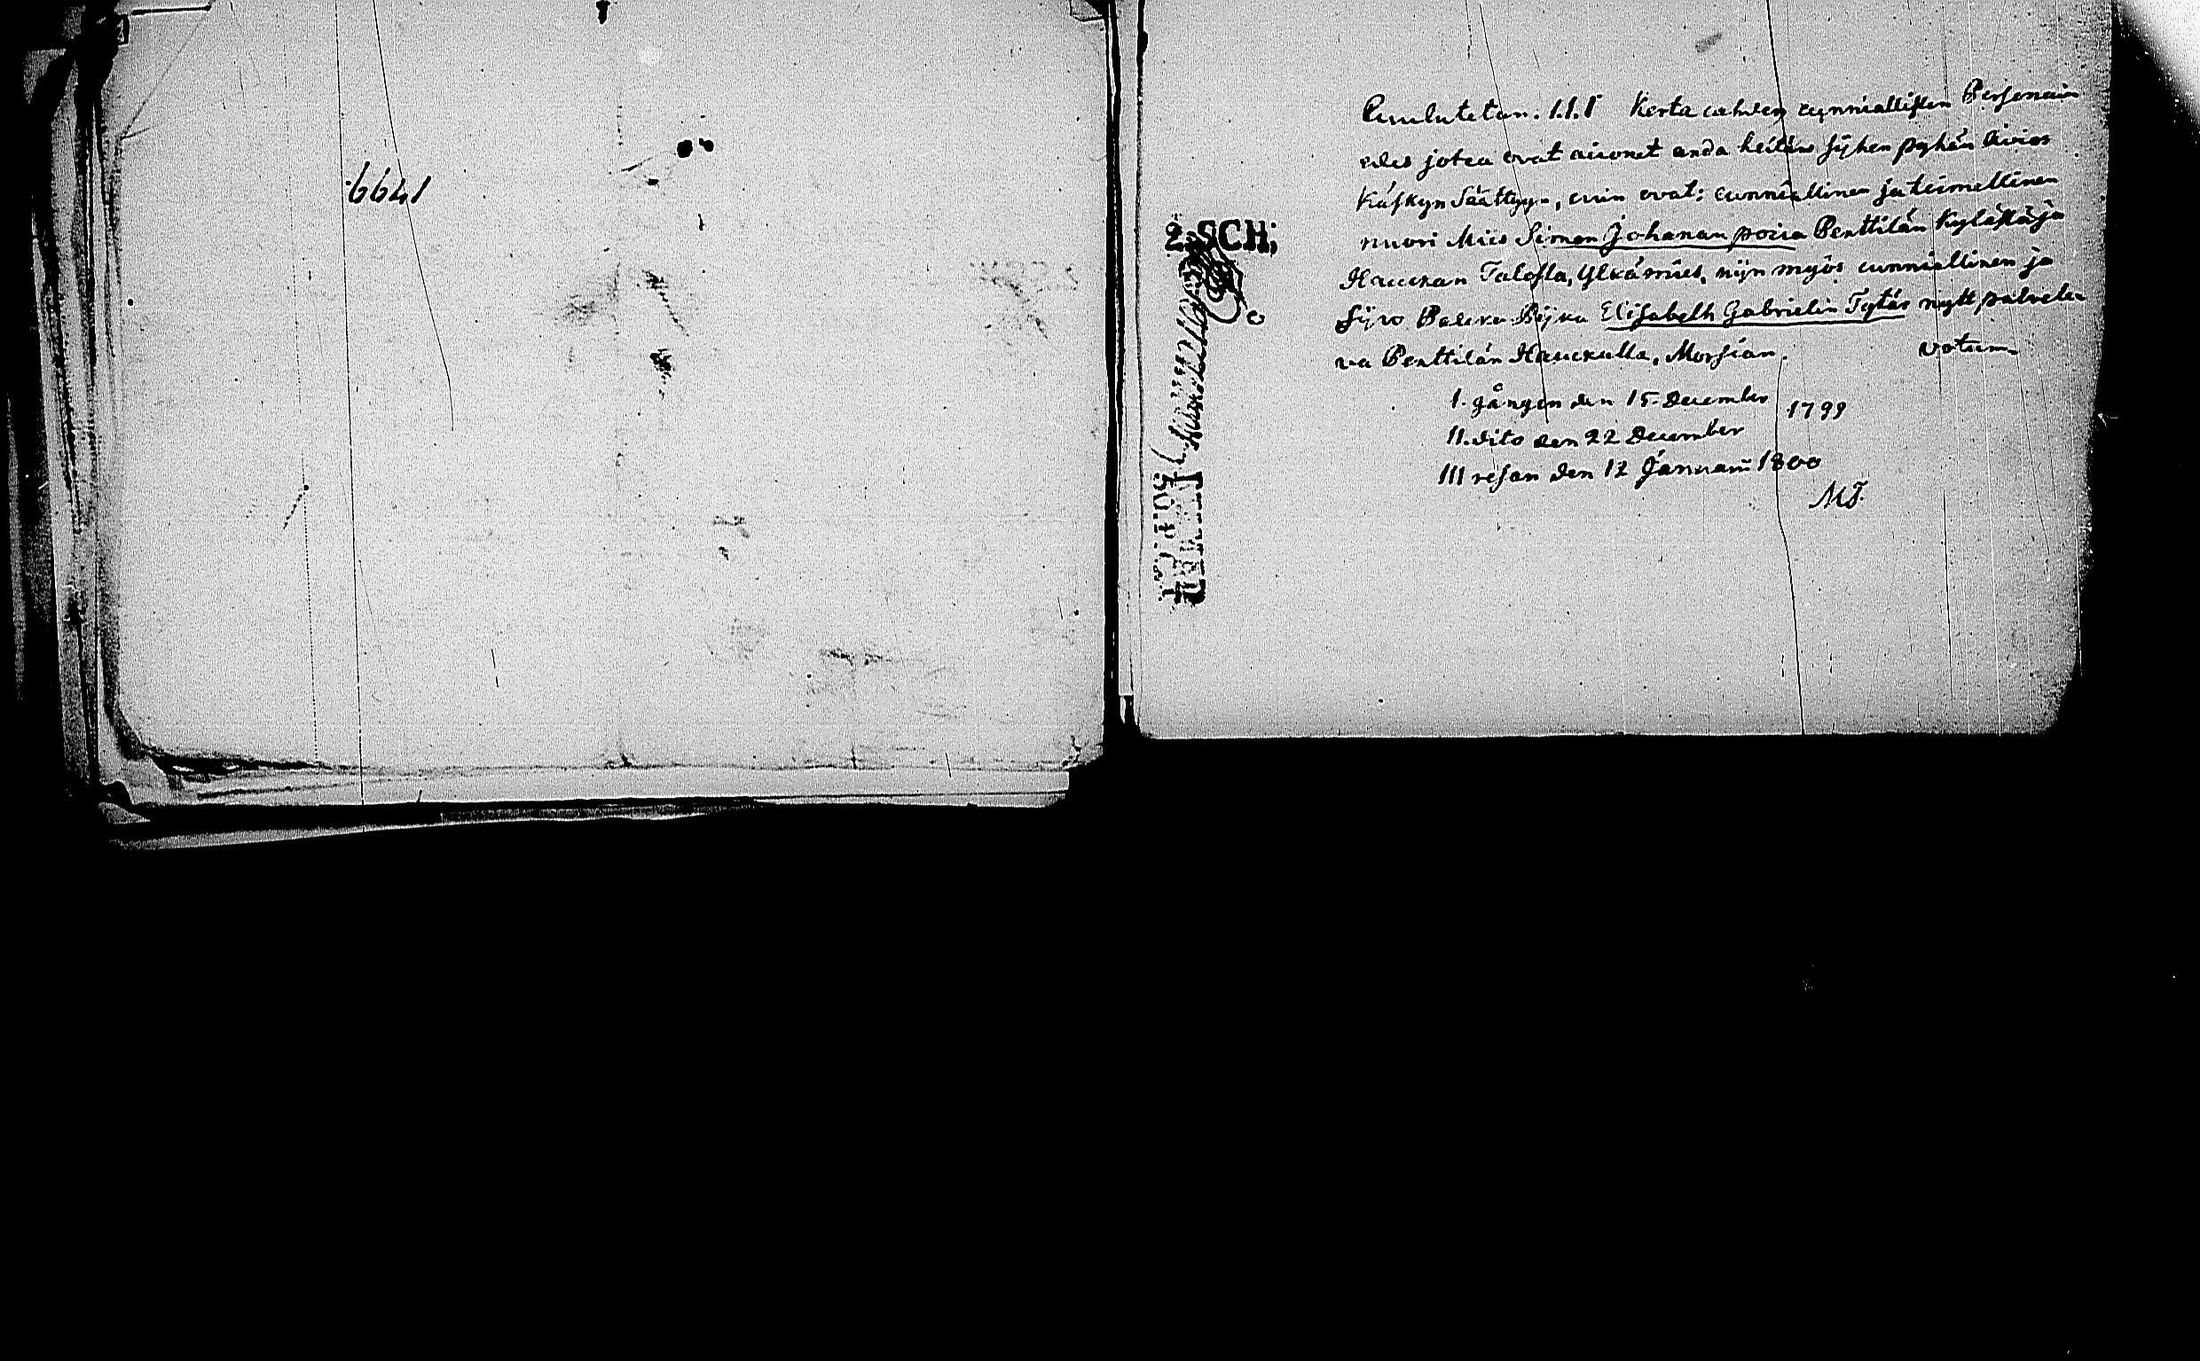 6641
2. SCH;
Cuulutetan. 1.1.1 Kerta cahden cunniallisten Persenain
edes jotca ovat aiconet anda heitäns sijhen pyhän Avios
Käskyn Säättyyn, cuin ovat; cunniallinen ja teimellinen
nuori Mies Simon Johanan poica Penttilän Kylästä ja
Hauckan Talosta, Ylkämies, nijn myös cunniallinen ja
Sijvo Pijka Elisabeth Gabrielin Tytär nytt palvele
va Penttilän Hauckalla, Morsian. votum
1. gången den 15. December 1799
11. dito den 22 December
111 resan den 12 Januarii 1800
MT.